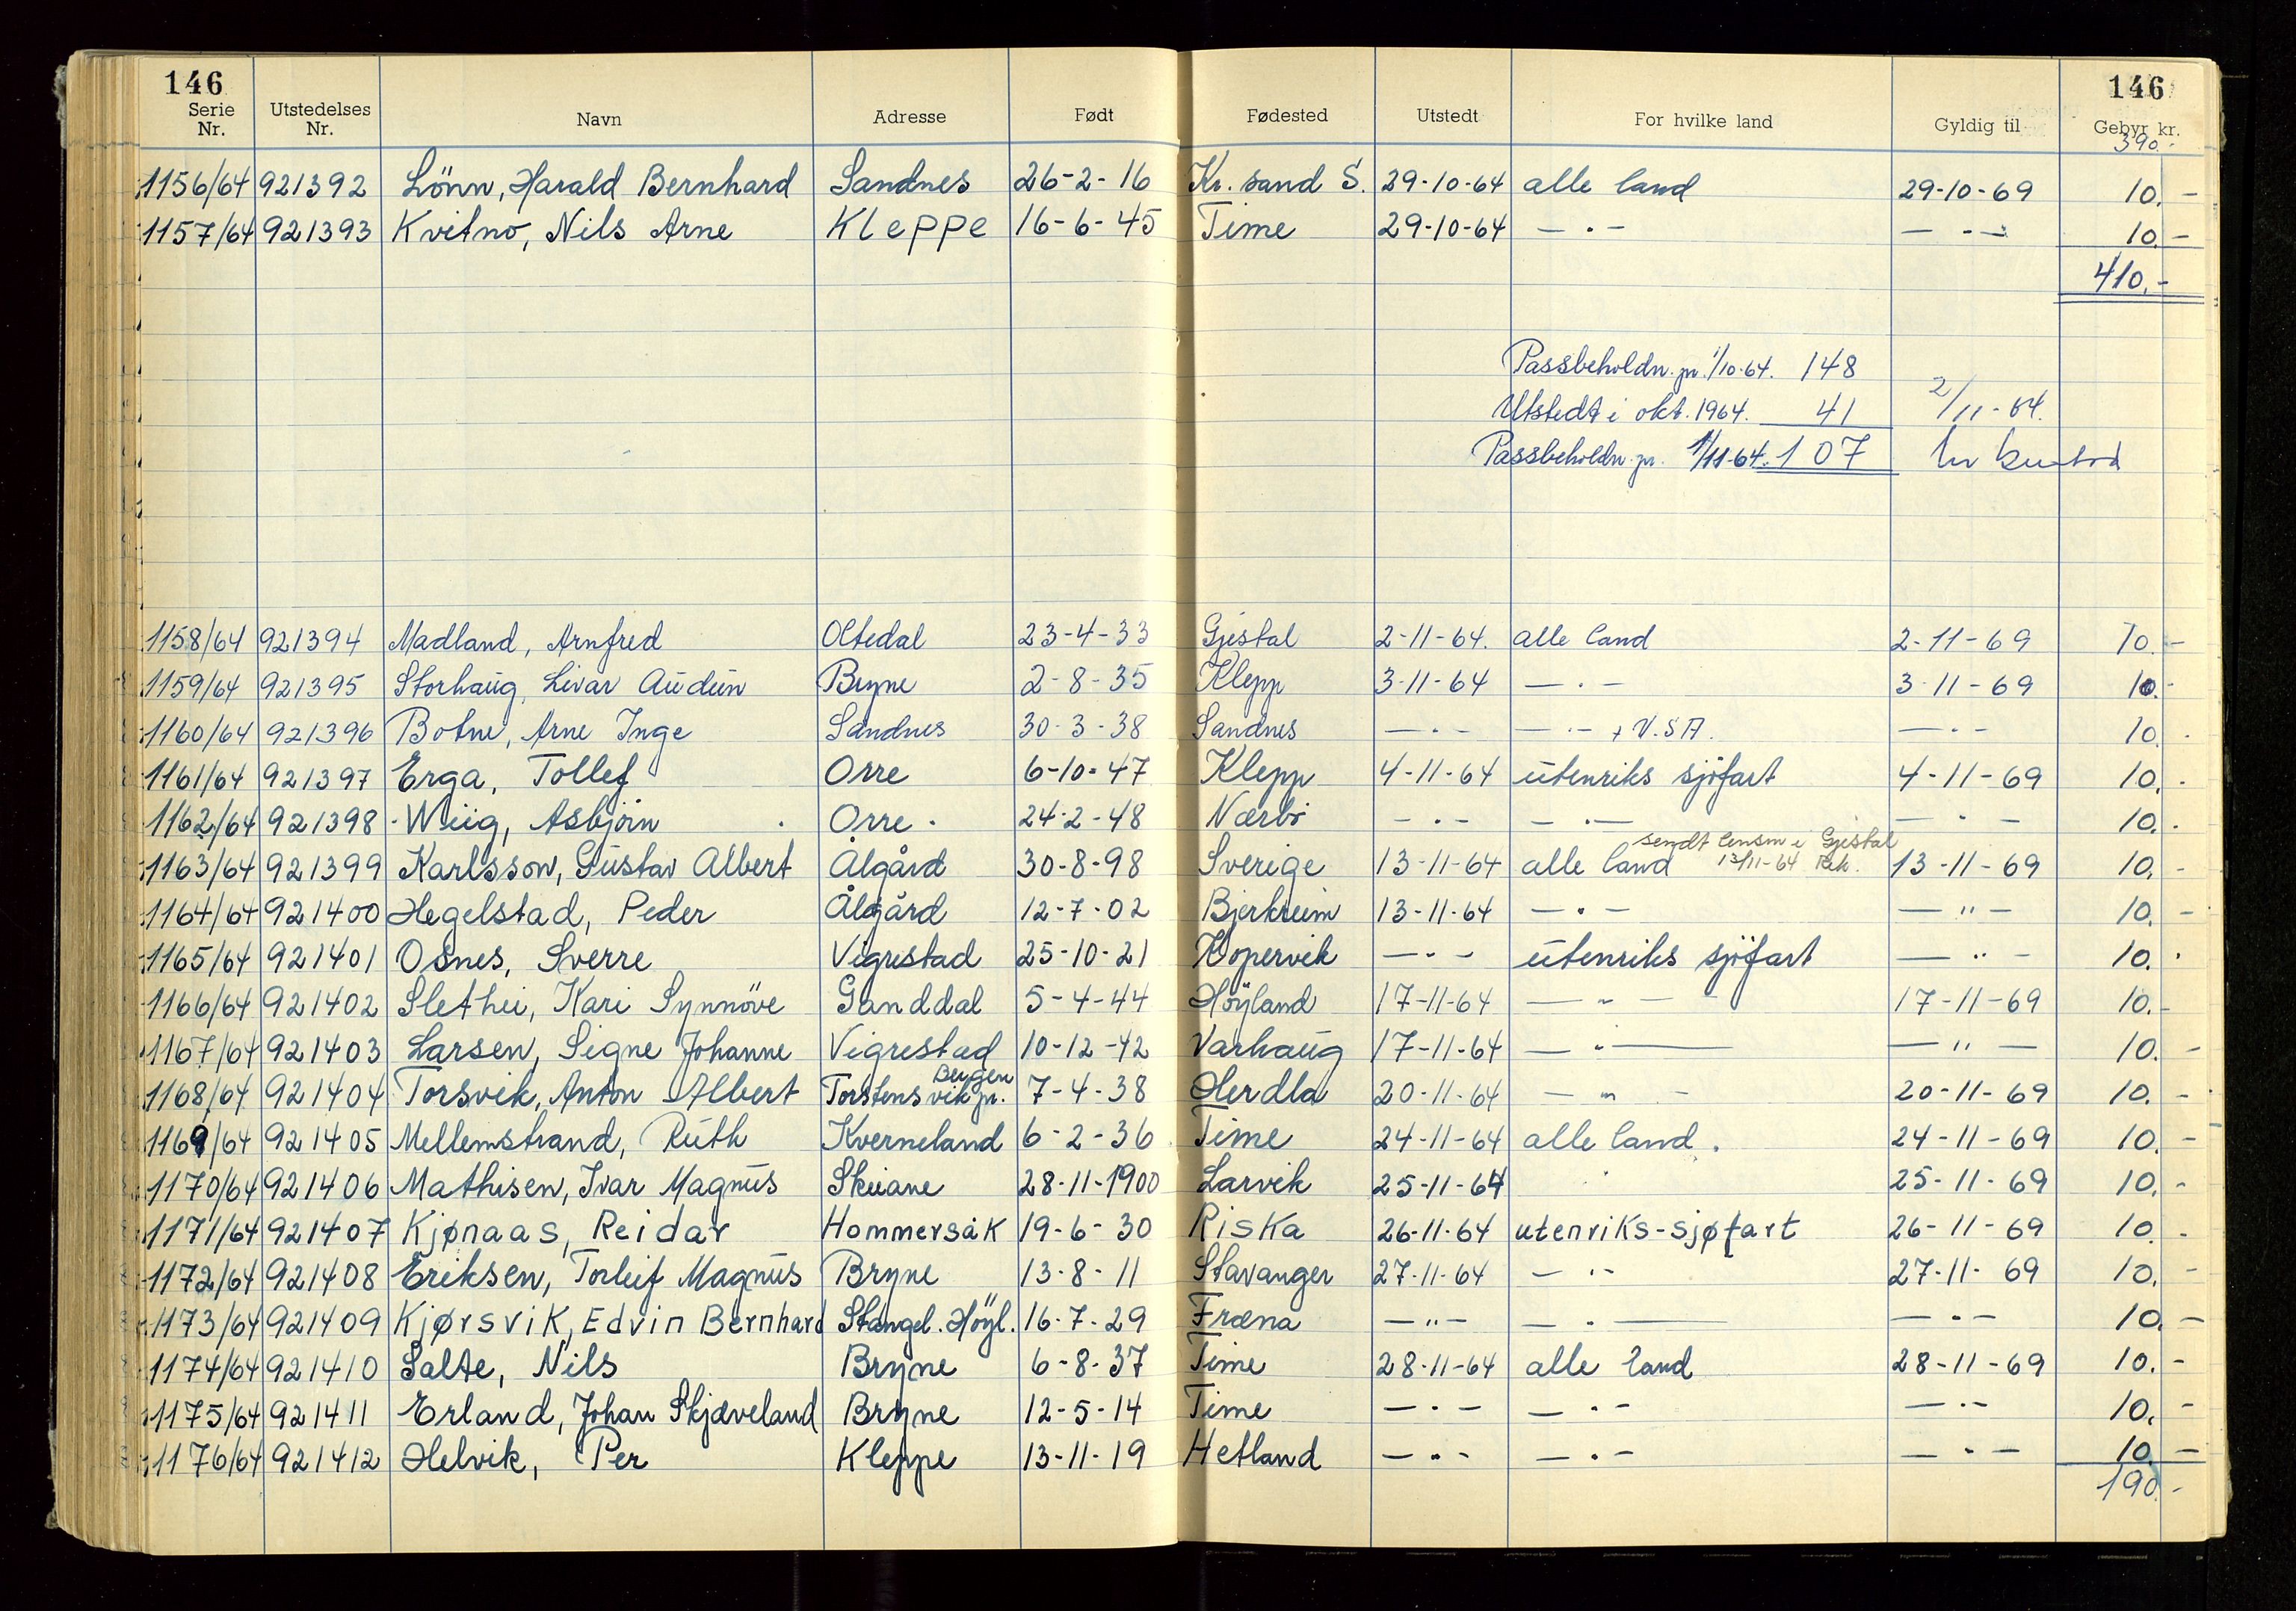 146 146
Serie Nr. Utstedelses Nr. Navn Adresse Født Fødested Utstedt For hvilke land Gyldig til Gebyr kr.
390.-
1156/64 921392 Lönn, Harald Bernhard Sandnes 26-2-16 Kr. sand S. 29-10-64 alle land 29-10-69 10.-
1157/64 921393 Kvitno, Nils Arne Kleppe 16-6-45 Time 29-10-64 — · — — · — 10.-
410.-
Passbeholdn. pr. 1/10-64. 148
Utstedt i okt. 1964. 41 2/11-64.
Passbeholdn. pr. 1/11-64. 107
1158/64 921394 Madland, Arnfred Oltedal 23-4-33 Gjestal 2-11-64. alle land 2-11-69 10.-
1159/64 921395 Storhaug, Livar Audun Bryne 2-8-35 Klepp 3-11-64 — · — 3-11-69 10.-
1160/64 921396 Botne, Arne Inge Sandnes 30-3-38 Sandnes — · — — · — + U.S.A. — · — 10.
1161/64 921397 Erga, Tollef Orre 6-10-47 Klepp 4-11-64 utenriks sjöfart 4-11-69 10.
1162/64 921398 Wiig, Asbjörn Orre 24-2-48 Nærbö — · — — · — — · — 10.
sendt lensm i Gjestal
1163/64 921399 Karlsson, Gustav Albert Ålgård 30-8-98 Sverige 13-11-64 alle land 13/11-64 Rek. 13-11-69 10.-
1164/64 921400 Hegelstad, Peder Ålgård 12-7-02 Bjerkreim 13-11-64 — · — — " — 10.-
1165/64 921401 Osnes, Sverre Vigrestad 25-10-21 Kopervik — " — utenriks sjöfart — " — 10.
1166/64 921402 Slethei, Kari Synnöve Ganddal 5-4-44 Höyland 17-11-64 — " — 17-11-69 10.-
1167/64 921403 Larsen, Signe Johanne Vigrestad 10-12-42 Varhaug 17-11-64 — " — — " — 10.-
1168/64 921404 Torsvik, Anton Albert Torstensvik pr. Bergen 7-4-38 Herdla 20-11-64 — " — 20-11-69 10.-
1169/64 921405 Mellemstrand, Ruth Kverneland 6-2-36 Time 24-11-64 alle land. 24-11-69 10.-
1170/64 921406 Mathisen, Ivar Magnus Skeiane 28-11-1900 Larvik 25-11-64 25-11-69 10.-
1171/64 921407 Kjønaas, Reidar Hommersåk 19-6-30 Riska 26-11-64 utenriks-sjøfart 26-11-69 10.-
1172/64 921408 Eriksen, Torleif Magnus Bryne 13-8-11 Stavanger 27-11-64 — " — 27-11-69 10.-
1173/64 921409 Kjørsvik, Edvin Bernhard Stangel. Höyl. 16-7-29 Fræna — " — — · — — · — 10.-
1174/64 921410 Salte, Nils Bryne 6-8-37 Time 28-11-64 alle land 28-11-69 10.-
1175/64 921411 Erland, Johan Skjæveland Bryne 12-5-14 Time — · — — · — — · — 10.-
1176/64 921412 Helvik, Per Kleppe 13-11-19 Hetland — · — — · — — · — 10.-
190.-